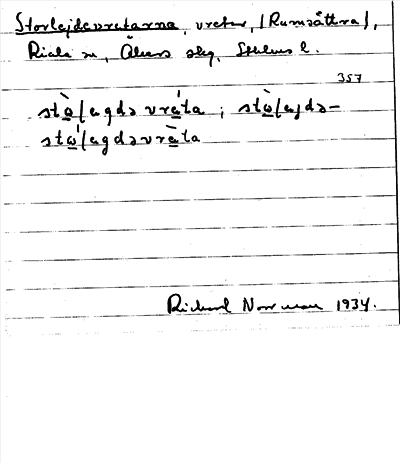 Storlejdevretarna, vretar, (Rumsättra),
Riala sn, Åkers slg, Sthlms l.
357
stò̲lagdə vrèta ; stò̲lajdə-
stò̲lagdəvrèta
Richard Norrman 1934.